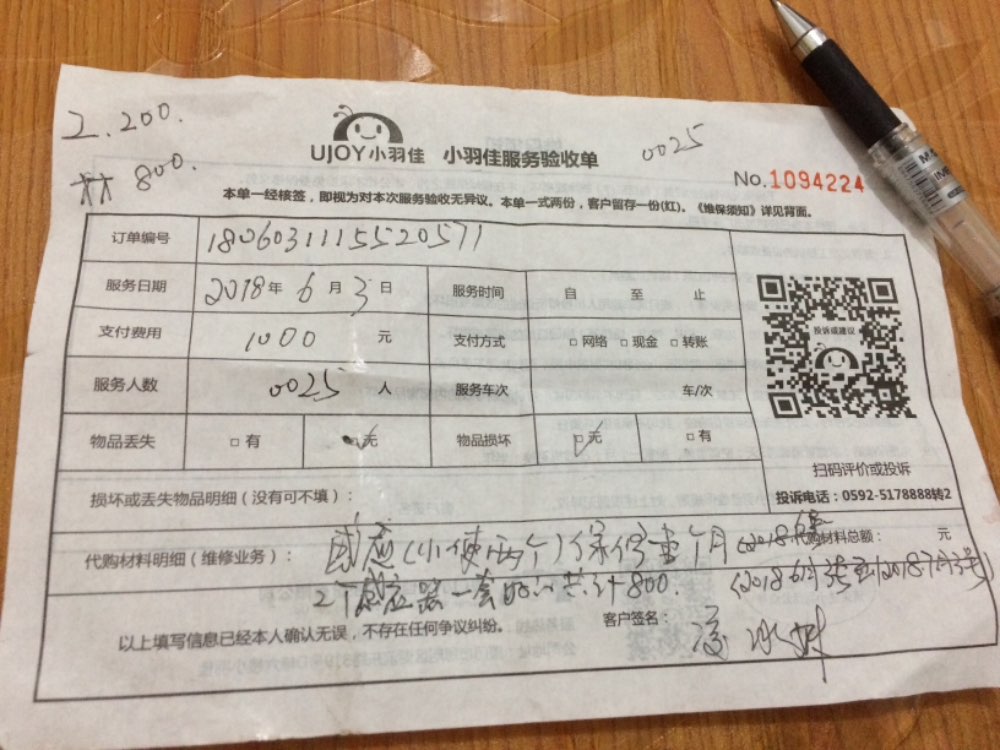 2.200.
800.
UJOY小羽佳 小羽佳服务验收单
0025
No.1094224
本单一经核签，即视为对本次服务验收无异议。本单一式两份，客户留存一份(红)。《维保须知》详见背面。
订单编号 1806031115520571
服务日期 2018年6月3日 服务时间 自 至 止
支付费用 1000 元 支付方式 □网络 □现金 □转账
服务人数 0025 人 服务车次 车/次
物品丢失 □有 ☑无 物品损坏 ☑无 □有
投诉或建议
扫码评价或投诉
投诉电话：0592-5178888转2
损坏或丢失物品明细（没有可不填）：
代购材料明细（维修业务）： 感应(小使两个)保修壹个月
代购材料总额： 元
2个感应器一套的 共计800. (2018 6月3号至2018 7月3号)
以上填写信息已经本人确认无误，不存在任何争议纠纷。 客户签名：